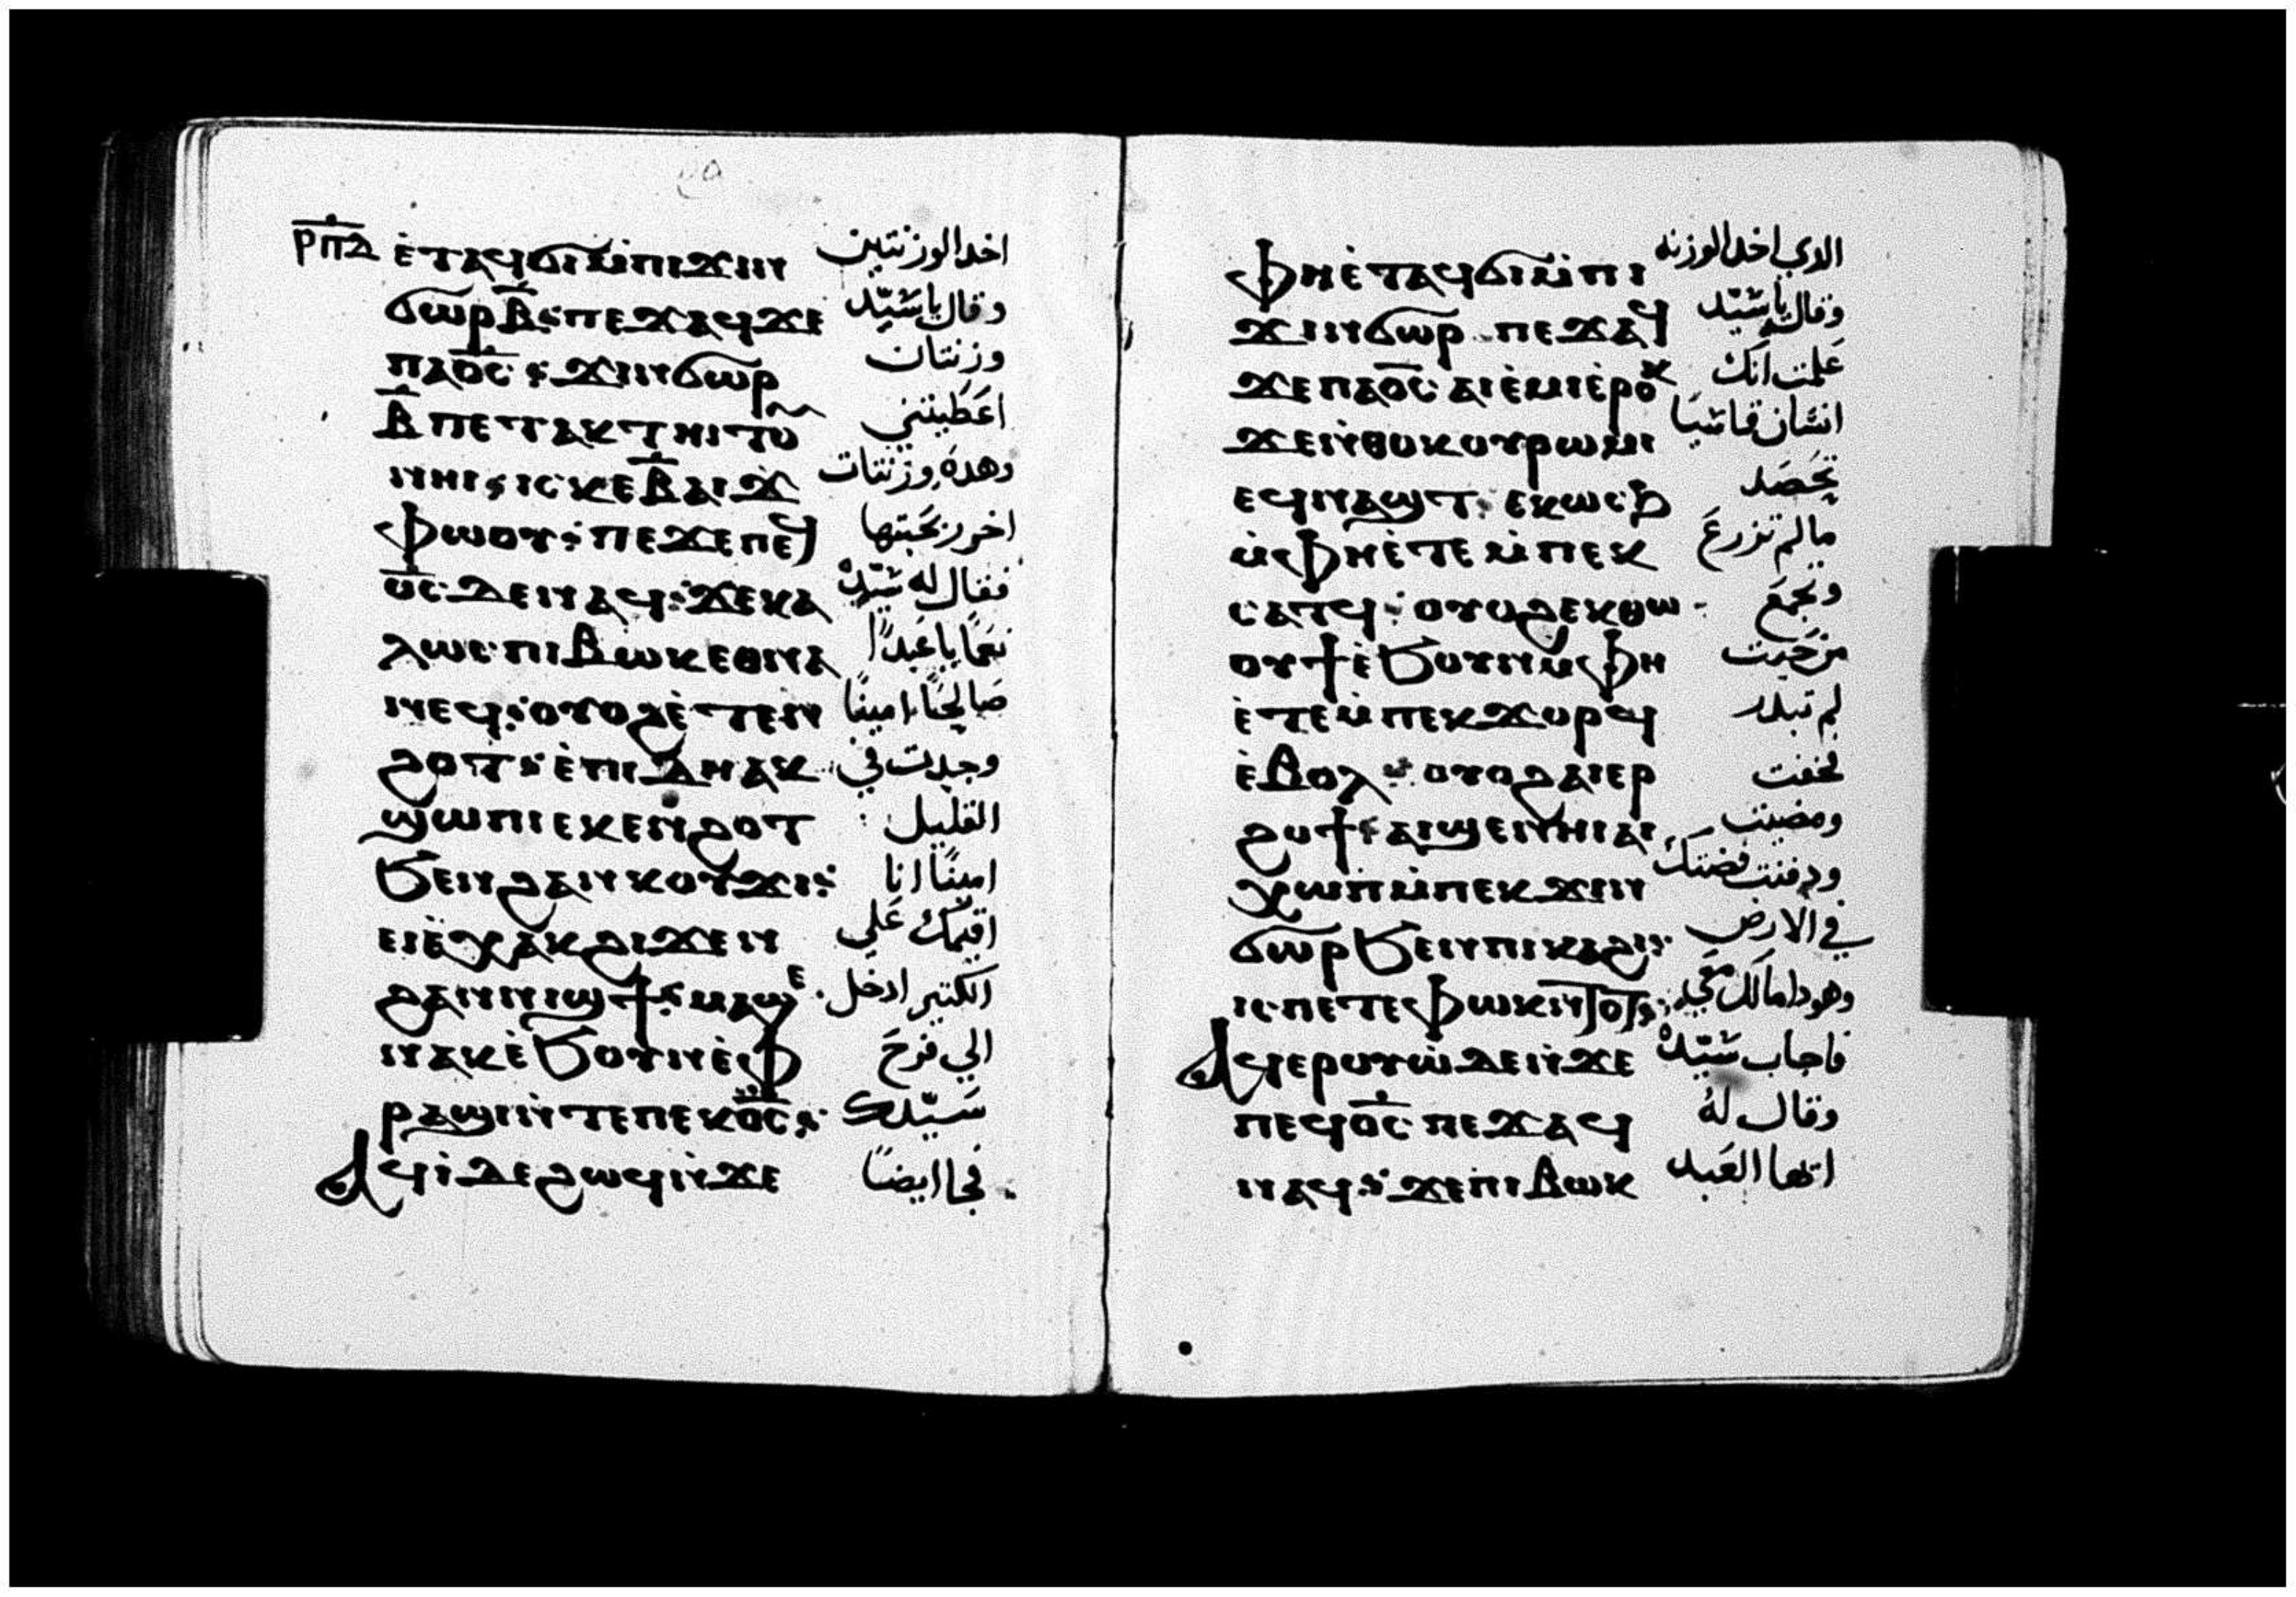 ⲣⲡⲇ
ⲉ̇ⲧⲁϥϭⲓⲙ̇ⲡⲓϫⲓⲛ اخد الوزنتين
ϭⲱⲣ ⲃ̅: ⲡⲉϫⲁϥϫⲉ وقال ياسَيّد
ⲡⲁⲟ̅ⲥ̅: ϫⲓⲛϭⲱⲣ وزنتان
ⲃ̅ ⲡⲉⲧⲁⲕⲧⲏⲓⲧⲟⲩ اعَطَيتني
ⲛⲏⲓ: ⲓⲥ ⲕⲉ ⲃ̅ ⲁⲓϫ وهده وزنتات
ⲫⲱⲟⲩ: ⲡⲉϫⲉⲡⲉϥ اخر ربَحَتها
ⲟ̅ⲥ̅ ⲇⲉⲛⲁϥ: ϫⲉⲕⲁ فقال له سَيّده
ⲗⲱⲥ ⲡⲓⲃⲱⲕⲉⲑⲛⲁ نعَمًا ياعَبدًا
ⲛⲉϥ: ⲟⲩⲟϩⲉ̇ⲧⲉⲛ صَالحًا امينًا
ϩⲟⲧ: ⲉ̇ⲡⲓⲇⲏⲁⲕ وجدت في
ϣⲱⲡⲓ ⲉⲕⲉⲛϩⲟⲧ القليل
ϧⲉⲛϩⲁⲛⲕⲟⲩϫⲓ: امينًا انا
ⲉⲓⲉ̇ⲭⲁⲕϩⲓϫⲉⲛ اقيمك عَلي
ϩⲁⲛⲛⲓϣϯ: ⲙⲁϣⲉ الكتير ادخل
ⲛⲁⲕ ⲉ̇ϧⲟⲩⲛ ⲉ̇ⲫ الي فرحَ
ⲣⲁϣⲓ ⲛ̇ⲧⲉⲡⲉⲕⲟ̅ⲥ̅: سَيّدك
ⲁϥⲓ̇ ⲇⲉ ϩⲱϥ ⲛ̇ϫⲉ فجا ايضًا
ⲫⲏⲉ̇ⲧⲁϥϭⲓⲙ̇ⲡⲓ الدي اخد الوزنه
ϫⲓⲛϭⲱⲣ ⲡⲉϫⲁϥ وقال ياسَيّد
ϫⲉⲡⲁⲟ̅ⲥ̅ ⲁⲓⲉ̇ⲙⲓⲉ̇ⲣⲟⲕ عَلمت انَك
ϫⲉⲛ̇ⲑⲟⲕⲟⲩⲣⲱⲙⲓ انسَان قاسيَا
ⲉϥⲛⲁϣⲧ: ⲉⲕⲱⲥϧ تحَصَد
ⲙ̇ⲫⲏⲉ̇ⲧⲉⲙ̇ⲡⲉⲕ مالم تزرعَ
ⲥⲁⲧϥ: ⲟⲩⲟϩ ⲉⲕⲑⲱ وتجمَع
ⲟⲩϯ ⲉ̇ϧⲟⲩⲛ ⲙ̇ⲫⲏ من حَيت
ⲉ̇ⲧⲉⲙ̇ⲡⲉⲕϫⲟⲣϥ لم تبدر
ⲉ̇ⲃⲟⲗ: ⲟⲩⲟϩ ⲁⲓⲉⲣ فخفت
ϩⲟϯ: ⲁⲓϣⲉⲛⲏⲓ ⲁⲓ ومضيت
ⲭⲱⲡ ⲙ̇ⲡⲉⲕϫⲓⲛ ودفنت فضتك
ϭⲱⲣ ϧⲉⲛⲡⲓⲕⲁϩⲓ: في الارض
ⲓⲥ ⲡⲉⲧⲉⲫⲱⲕ ⲛ̇ⲧⲟⲧ: وهودا مالك معَي
ⲁϥⲉⲣⲟⲩⲱ̇ ⲇⲉ ⲛ̇ϫⲉ فاجاب سَيّده
ⲡⲉϥⲟ̅ⲥ̅ ⲡⲉϫⲁϥ وقال له
ⲛⲁϥ: ϫⲉⲡⲓⲃⲱⲕ ايها العَبد